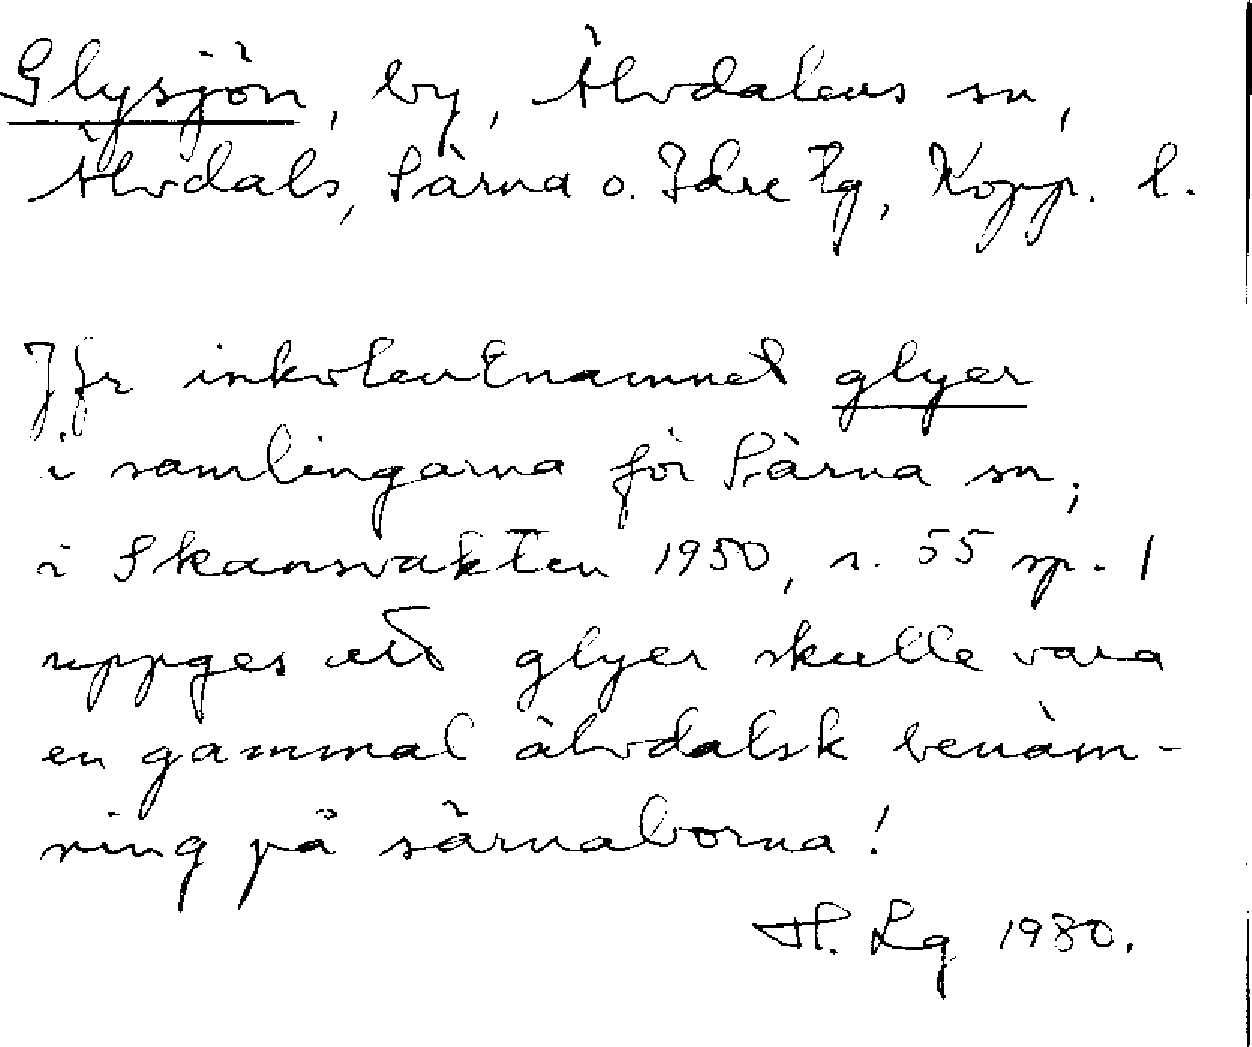 Glysjön, by, Älvdalens sn,
Älvdals, Särna o. Idre tg, Kopp. l.
Jfr inkolentnamnet glyer
i samlingarna för Särna sn;
i Skansvakten 1950, s. 55 sp. 1
uppges att glyer skulle vara
en gammal älvdalsk benäm-
ning på särnaborna!
H. Lg 1980.